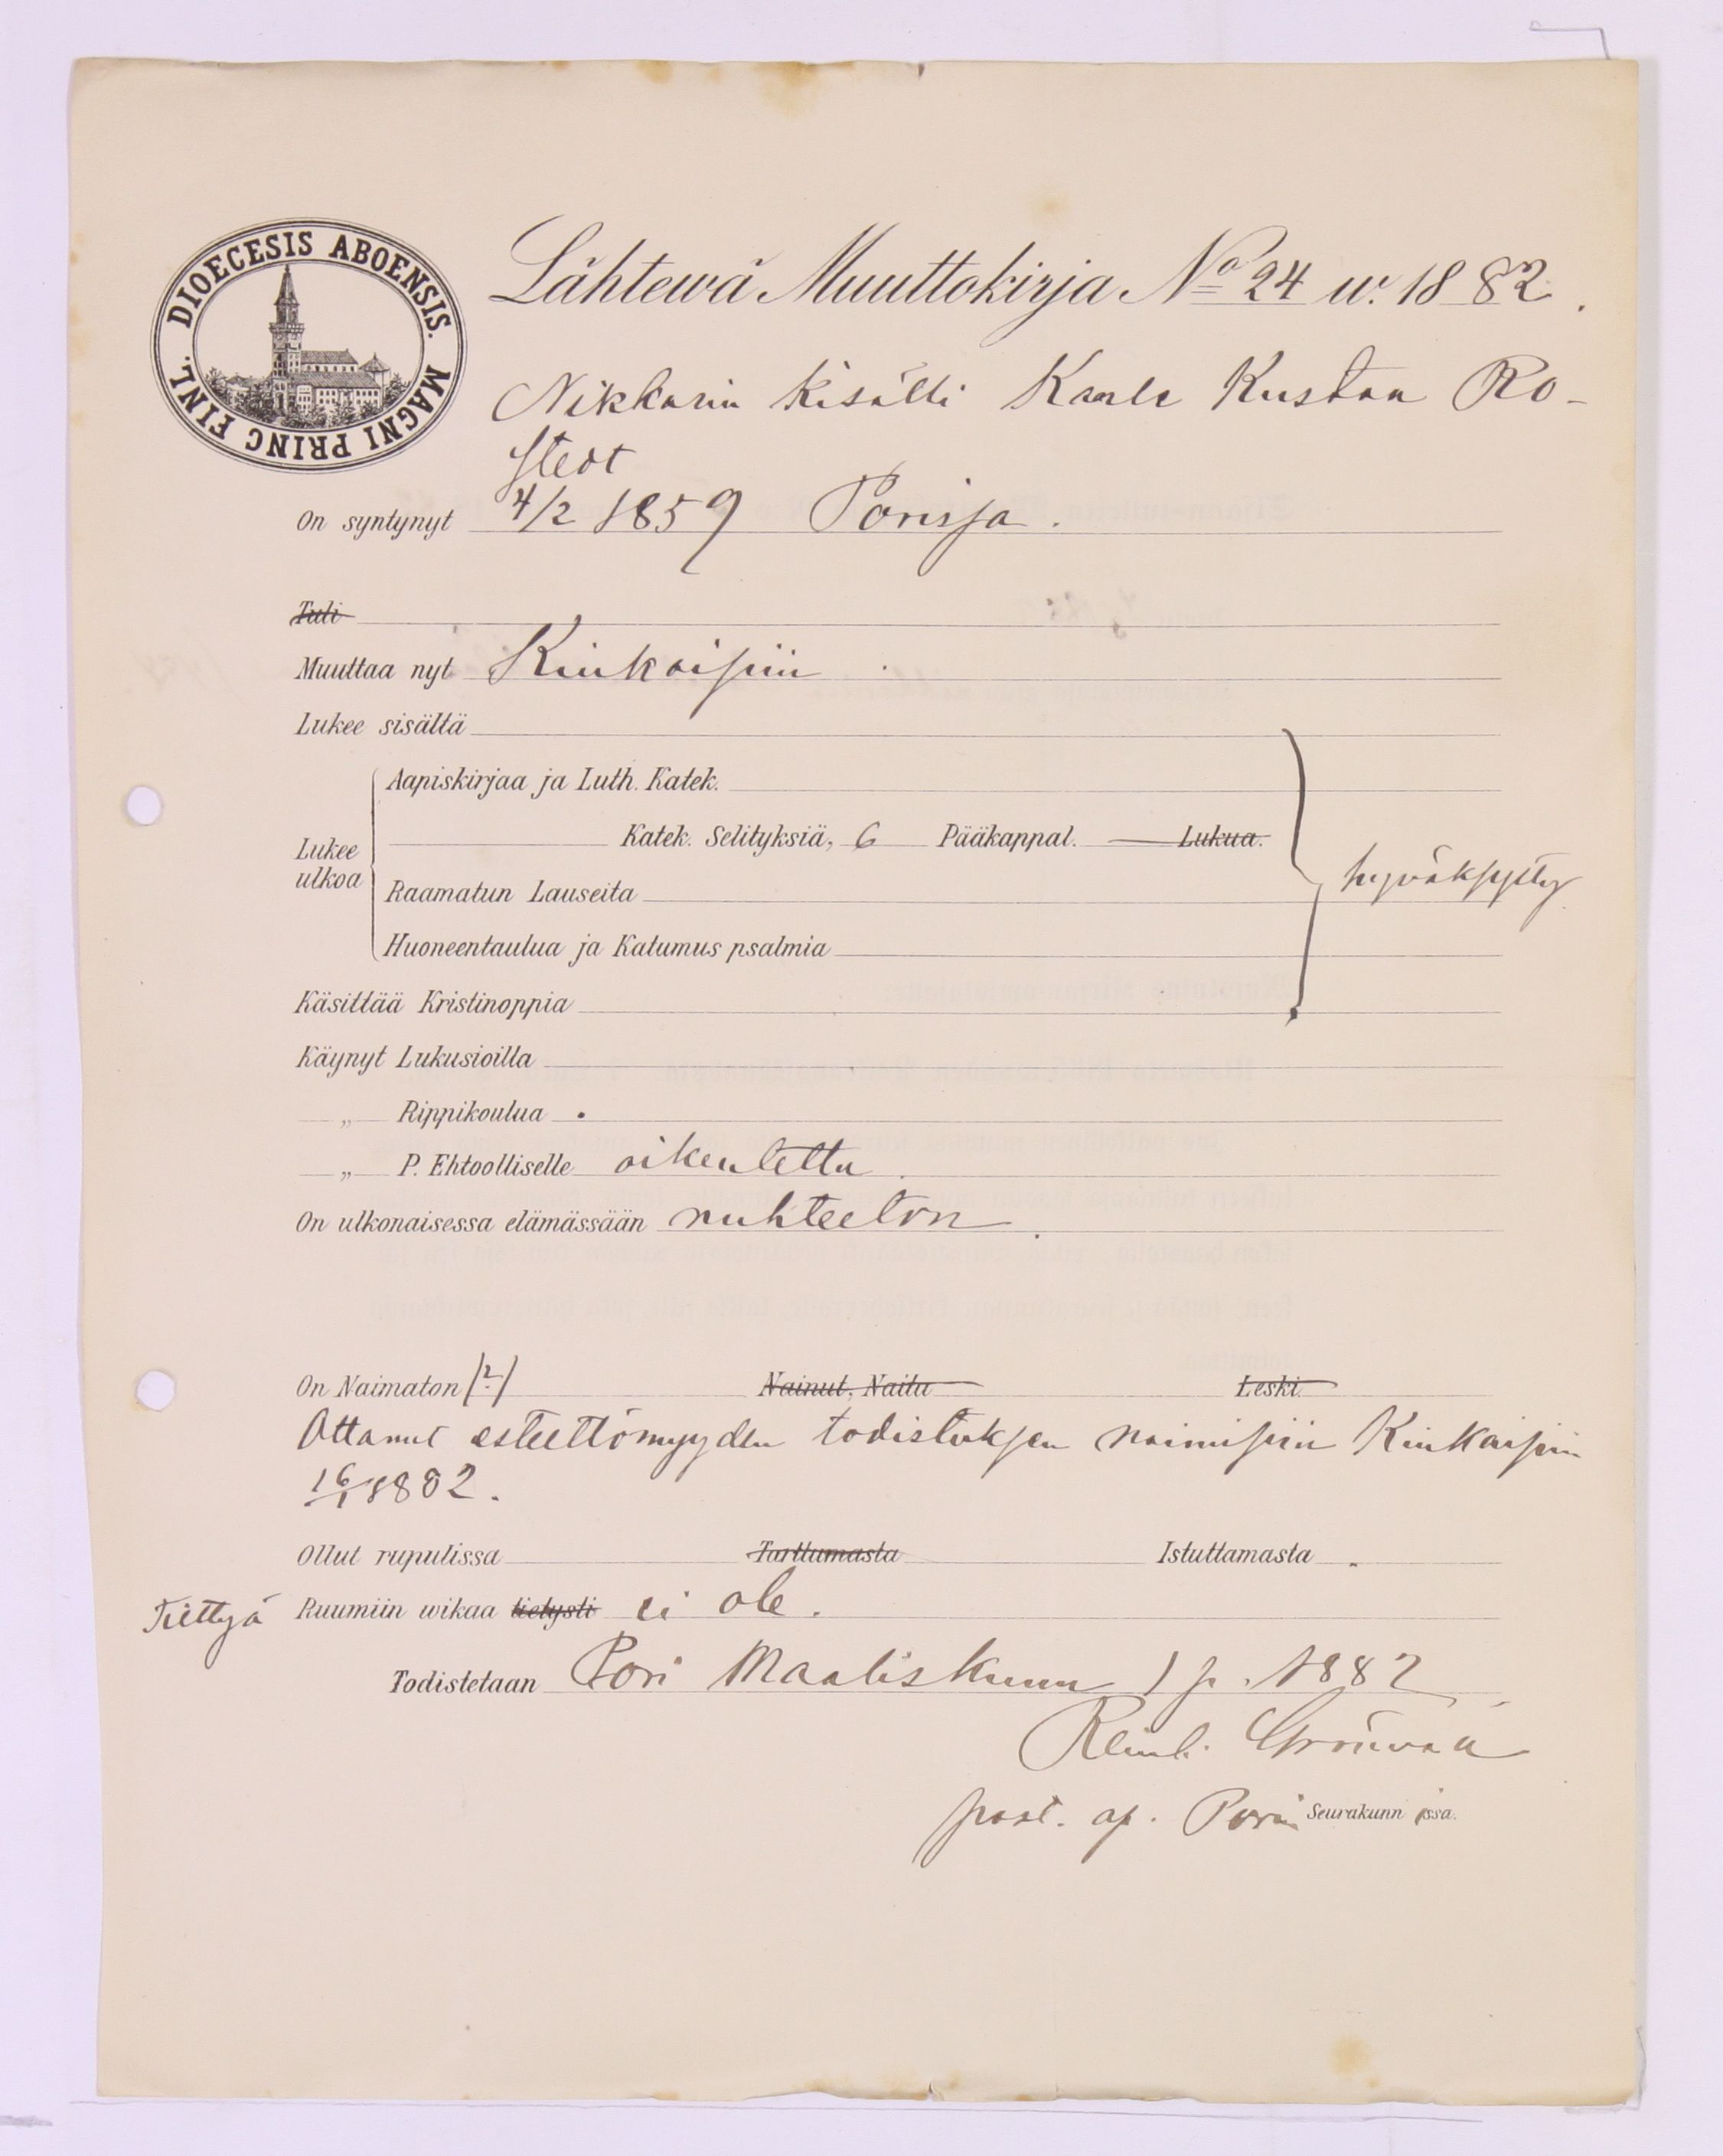 DIOECESIS ABOENSIS. MAGNI PRINC FINL.
Lähtewä Muuttokirja No 24 w. 1882.
Nikkarin kisälli Kaarle Kustaa Ro-
stedt
On syntynyt 4/2 1859 Porissa.
Tuli
Muuttaa nyt Kiukaisiin
Lukee sisältä
Aapiskirjaa ja Luth. Katek.
Katek. Selityksiä, 6 Pääkappal. Lukua.
Lukee
ulkoa
hyväksytty
Raamatun Lauseita
Huoneentaulua ja Katumus psalmia
Käsittää Kristinoppia
Käynyt Lukusioilla
„ Rippikoulua
„ P. Ehtoolliselle oikeutettu.
On ulkonaisessa elämässään nuhteeton.
On Naimaton (?) Nainut, Naitu Leski.
Ottanut esteettömyyden todistuksen naimisiin Kiukaisiin
16/1 1882.
Ollut rupulissa Tarttumasta Istuttamasta
Tiettyä Ruumiin wikaa tietysti ei ole.
Todistetaan Pori Maaliskuun 1 p. 1882
Reinh. Grönvall
past. ap. Porin Seurakunnissa.